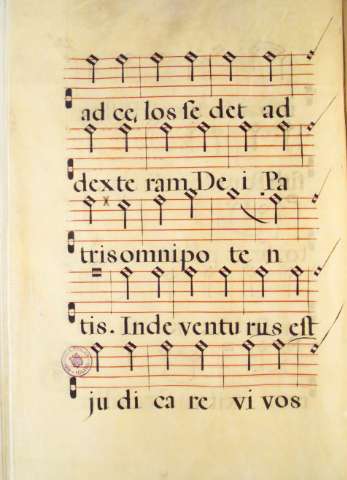 ad ce, los se det ad
dexte ram De i Pa
tris omnipo te n
tis. Inde ventu rus est
ju di ca re vi vos